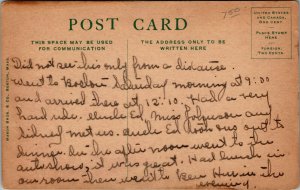 755
POST CARD
THIS SPACE MAY BE USED FOR COMMUNICATION
THE ADDRESS ONLY TO BE WRITTEN HERE
UNITED STATES AND CANADA, ONE CENT
PLACE STAMP HERE
FOREIGN, TWO CENTS
MASON BROS. & CO. BOSTON, MASS.
Did not see this only from a distance.
Went to Boston Saturday morning at 9:00
and arrived there at 12:10. Had a very
hard ride. Uncle Ed, Miss Johnson and
Sidney met us. Uncle Ed took us out to
dinner. In the afternoon went to the
auto show, it was great. Had lunch in
our room then went to Keen in the
evening.